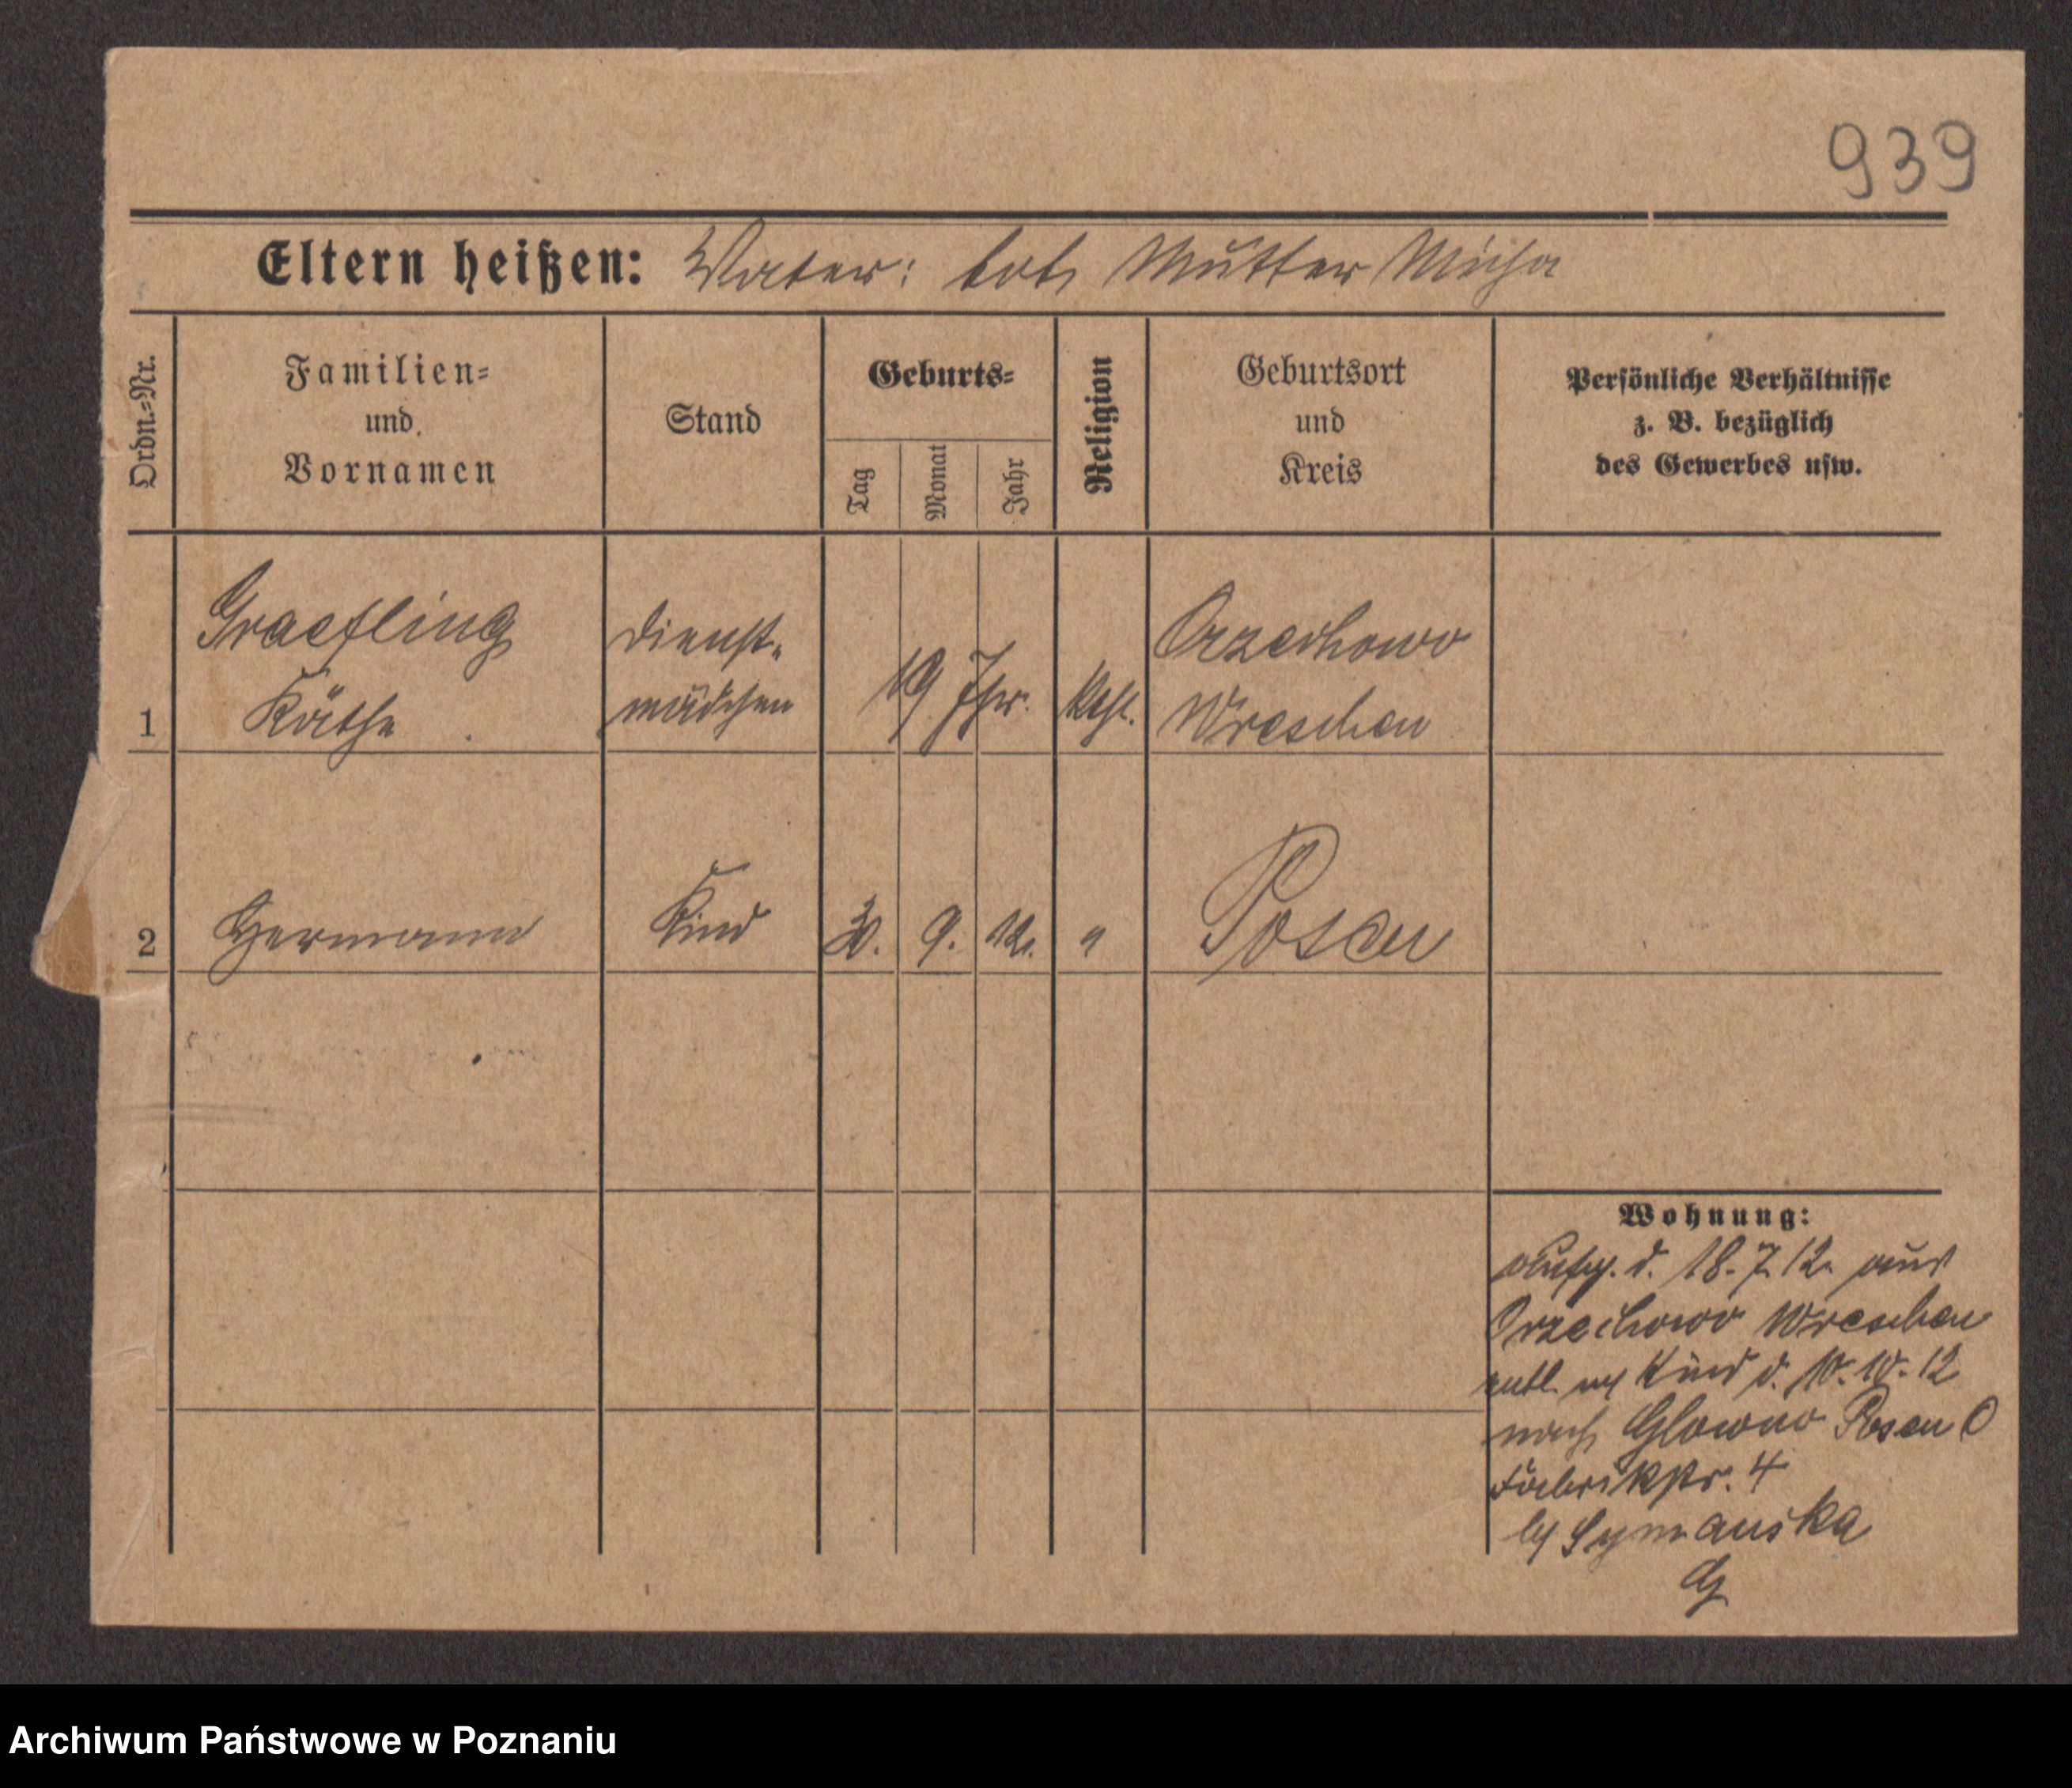 939
Eltern heißen: Vater: tot, Mutter
Ordn.-Nr.
Familien-
und
Vornamen
Stand
Geburts-
Tag
Monat
Jahr
Religion
Geburtsort
und
Kreis
Persönliche Verhältnisse
z. B. bezüglich
des Gewerbes usw.
1
Graefling
Käthe
Dienst-
mädchen
19 Jhr.
kath.
Orzechowo
Wreschen
2
Hermann
Kind
30. 9. 12.
"
Posen
Wohnung:
aufg. d. 18. 7. 12. aus
Orzechowo Wreschen
entl. m Kind d. 10. 10. 12
nach Glowno Posen O
Fabrikstr. 4
by Symanska
G
Archiwum Państwowe w Poznaniu